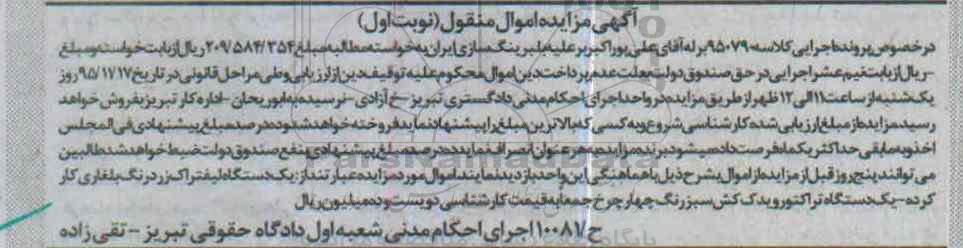 آگهی مزایده اموال منقول (نوبت اول)
درخصوص پرونده اجرایی کلاسه ۹۵۰۷۹ برله آقای علی پوراکبر برعلیه بلبرینگ سازی ایران به خواسته مطالبه مبلغ ۲۰۹/۵۸۴/۳۵۴ ریال از بابت خواسته و مبلغ
-ریال از بابت نیم عشر اجرایی در حق صندوق دولت بعلت عدم پرداخت دین اموال محکوم علیه توقیف دین ازارزیابی وطی مراحل قانونی در تاریخ ۹۵/۱۲/۱۷ روز
یکشنبه از ساعت ۱۱ الی ۱۲ ظهر از طریق مزایده در واحد اجرای احکام مدنی دادگستری تبریز - خ آزادی - نرسیده به ابوریحان - اداره کار تبریز بفروش خواهد
رسید مزایده از مبلغ ارزیابی شده کارشناسی شروع و به کسی که بالاترین مبلغ را پیشنهاد نماید فروخته خواهد شد و ده درصد مبلغ پیشنهادی فی المجلس
اخذ و به مابقی حداکثر یکماه فرصت داده میشود برنده مزایده به هر عنوان انصراف نماید ده درصد مبلغ پیشنهادی بنفع صندوق دولت ضبط خواهد شد طالبین
می توانند پنج روز قبل از مزایده از اموال بشرح ذیل با هماهنگی این واحد بازدید نمایند اموال مورد مزایده عبارتند از: یک دستگاه لیفتراک زرد رنگ بلغاری کار
کرده - یک دستگاه تراکتور و یدک کش سبز رنگ چهار چرخ جمعا به قیمت کارشناسی دویست و ده میلیون ریال
ح/۱۰۰۸۱ اجرای احکام مدنی شعبه اول دادگاه حقوقی تبریز - تقی زاده
ParsNamadData